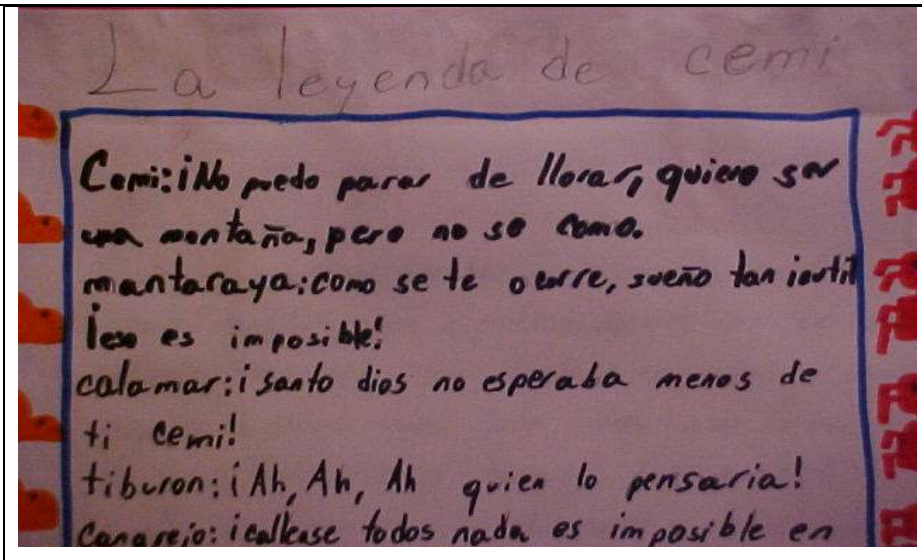 La leyenda de cemi
Cemi: ¡No puedo parar de llorar, quiero ser
una montaña, pero no se como.
mantaraya: como se te ocurre, sueño tan inutil
¡eso es imposible!
calamar: ¡santo dios no esperaba menos de
ti cemi!
tiburon: ¡Ah, Ah, Ah quien lo pensaria!
Cangrejo: ¡callense todos nada es imposible en